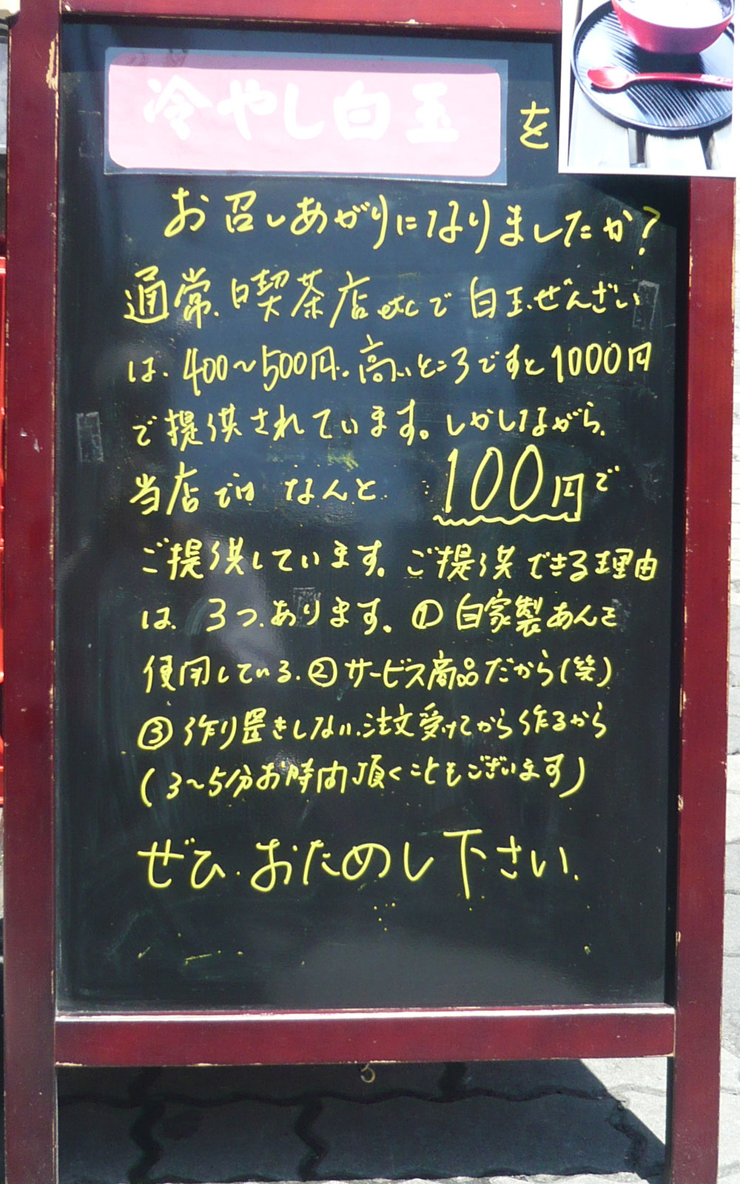 冷やし白玉を
お召しあがりになりましたか?
通常、喫茶店etcで白玉ぜんざい
は、400~500円。高いところですと1000円
で提供されています。しかしながら、
当店では なんと 100円で
ご提供しています。ご提供できる理由
は、3つあります。①自家製あんを
使用している、②サービス商品だから(笑)
③作り置きしない、注文受けてから作るから
(3~5分お時間頂くこともございます)
ぜひ、おためし下さい。